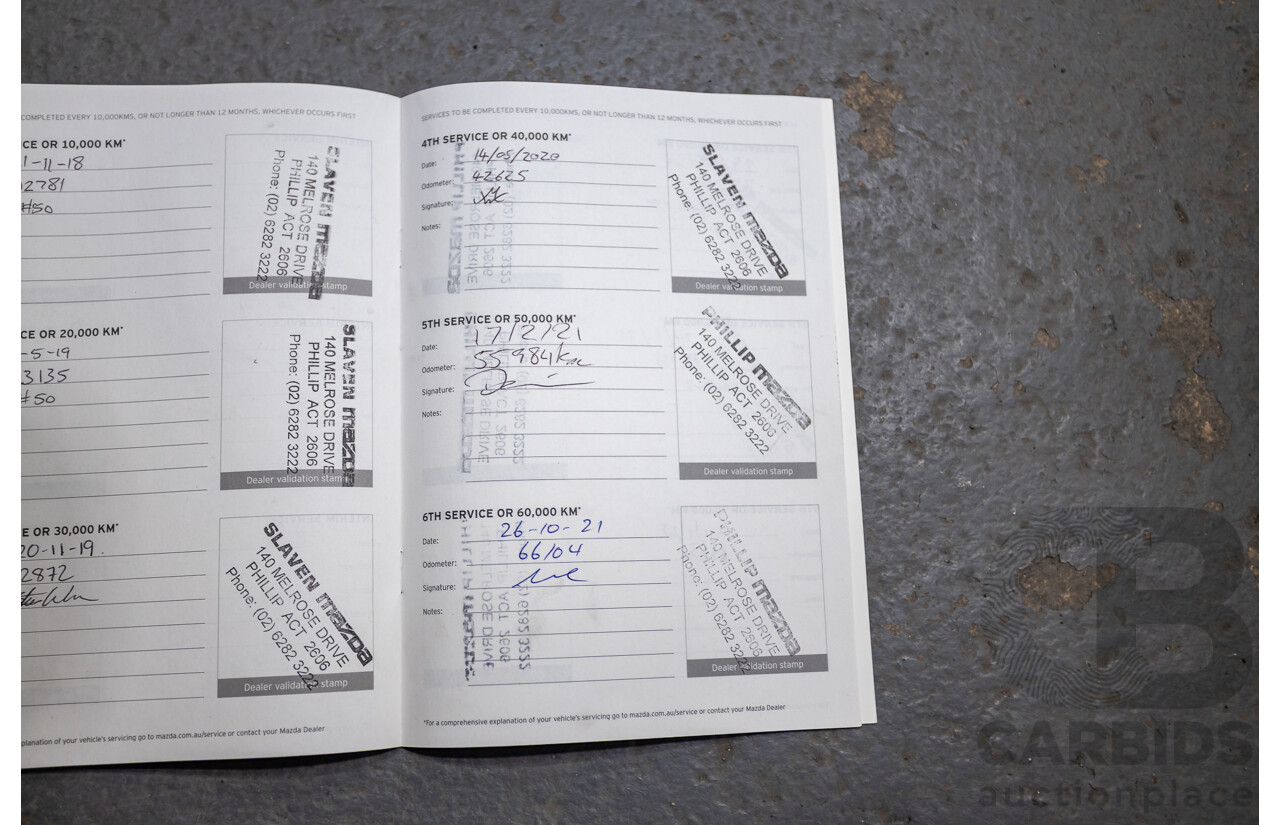 COMPLETED EVERY 10,000KMS, OR NOT LONGER THAN 12 MONTHS, WHICHEVER OCCURS FIRST
CE OR 10,000 KM*
1-11-18
2781
#50
SLAVEN mazda
140 MELROSE DRIVE
PHILLIP ACT 2606
Phone: (02) 6282 3222
Dealer validation stamp
CE OR 20,000 KM*
-5-19
3135
#50
SLAVEN mazda
140 MELROSE DRIVE
PHILLIP ACT 2606
Phone: (02) 6282 3222
Dealer validation stamp
E OR 30,000 KM*
20-11-19.
2872
SLAVEN mazda
140 MELROSE DRIVE
PHILLIP ACT 2606
Phone: (02) 6282 3222
Dealer validation stamp
planation of your vehicle's servicing go to mazda.com.au/service or contact your Mazda Dealer
SERVICES TO BE COMPLETED EVERY 10,000KMS, OR NOT LONGER THAN 12 MONTHS, WHICHEVER OCCURS FIRST
4TH SERVICE OR 40,000 KM*
Date: 14/05/2020
Odometer: 42625
Signature:
Notes:
SLAVEN mazda
140 MELROSE DRIVE
PHILLIP ACT 2606
Phone: (02) 6282 3222
Dealer validation stamp
5TH SERVICE OR 50,000 KM*
Date: 17/2/21
Odometer: 55984km
Signature:
Notes:
PHILLIP mazda
140 MELROSE DRIVE
PHILLIP ACT 2606
Phone: (02) 6282 3222
Dealer validation stamp
6TH SERVICE OR 60,000 KM*
Date: 26-10-21
Odometer: 66104
Signature:
Notes:
PHILLIP mazda
140 MELROSE DRIVE
PHILLIP ACT 2606
Phone: (02) 6282 3222
Dealer validation stamp
*For a comprehensive explanation of your vehicle's servicing go to mazda.com.au/service or contact your Mazda Dealer
CARBIDS
auctionplace